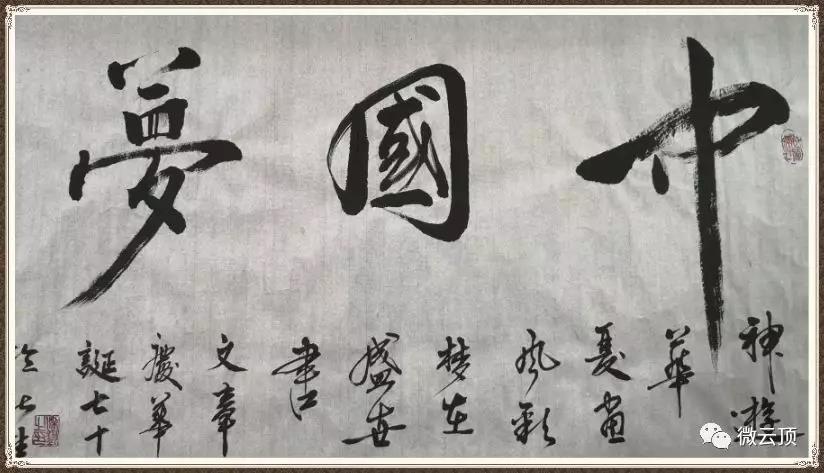 中國夢
神
華
夏畫
風彩
梦在
盛世
書
文章
慶華
誕七十
微云顶